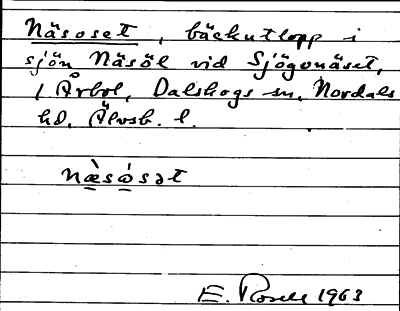 Näsoset, bäckutlopp i
sjön Näsöl vid Sjögonäset,
/ Årbol, Dalskogs sn, Nordals
hd, Älvsb. l.
næ̀sósət
E. Rosell 1963